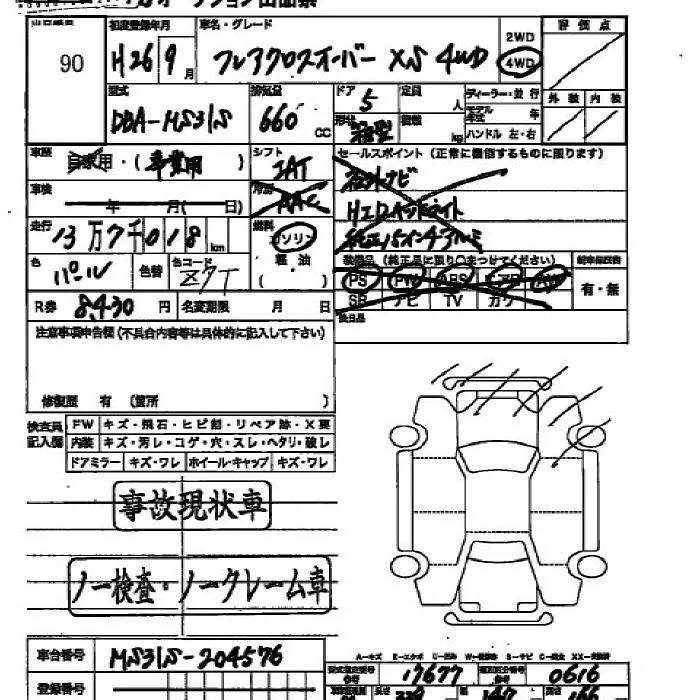 90
初度登録年月
H26 9月
車名・グレード
フレアクロスオーバー XS 4WD
2WD
4WD
評価点
外装 内装
型式
DBA-MS31S
排気量
660 CC
ドア 5
定員 人
形状 箱型
積載 kg
ディーラー・並行
モデル年式 年
ハンドル 左・右
車歴
自家用・(事業用)
シフト
IAT
セールスポイント(正常に機能するものに限ります)
社外ナビ
HIDヘッドライト
純正15インチアルミ
車検
年 月( 日)
冷房
AAC
走行
13万7千018km
燃料
ガソリン
軽油
( )
色
パール
色替
色コード
Z7T
装備品(純正品に限り○をつけてください)
PS PW ABS エアB AW
SR ナビ TV カワ
新車保証書
有・無
R券 8,430円
名変期限 月 日
後日品
注意事項申告欄(不具合内容等は具体的に記入して下さい)
修復歴 有 (箇所 )
検査員記入欄
FW キズ・飛石・ヒビ割・リペア跡・X要
内装 キズ・汚レ・コゲ・穴・スレ・ヘタリ・破レ
ドアミラー キズ・ワレ ホイール・キャップ キズ・ワレ
事故現状車
ノー検査・ノークレーム車
車台番号 MS31S-204576
登録番号
A-キズ E-エクボ
型式指定番号 17677
類別区分番号 0616
長さ 339 幅 147 高さ 166